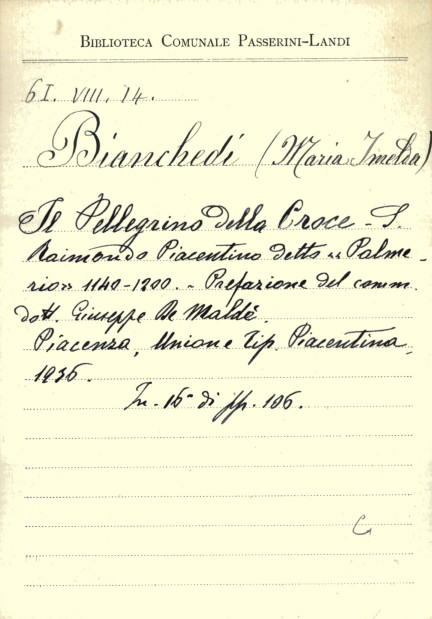 BIBLIOTECA COMUNALE PASSERINI-LANDI
6I. VIII. 14.
Bianchedi (Maria Imelda)
Il Pellegrino della Croce - S.
Raimondo Piacentino detto «Palme-
rio» 1140-1200. - Prefazione del comm.
dott. Giuseppe De Maldè.
Piacenza, Unione Tip. Piacentina,
1936.
In-16° di pp. 106.
C